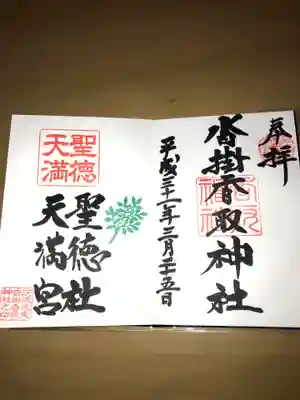 奉拝
沓掛香取神社
平成三十一年二月二十五日
聖徳社
天満宮
聖徳
天満